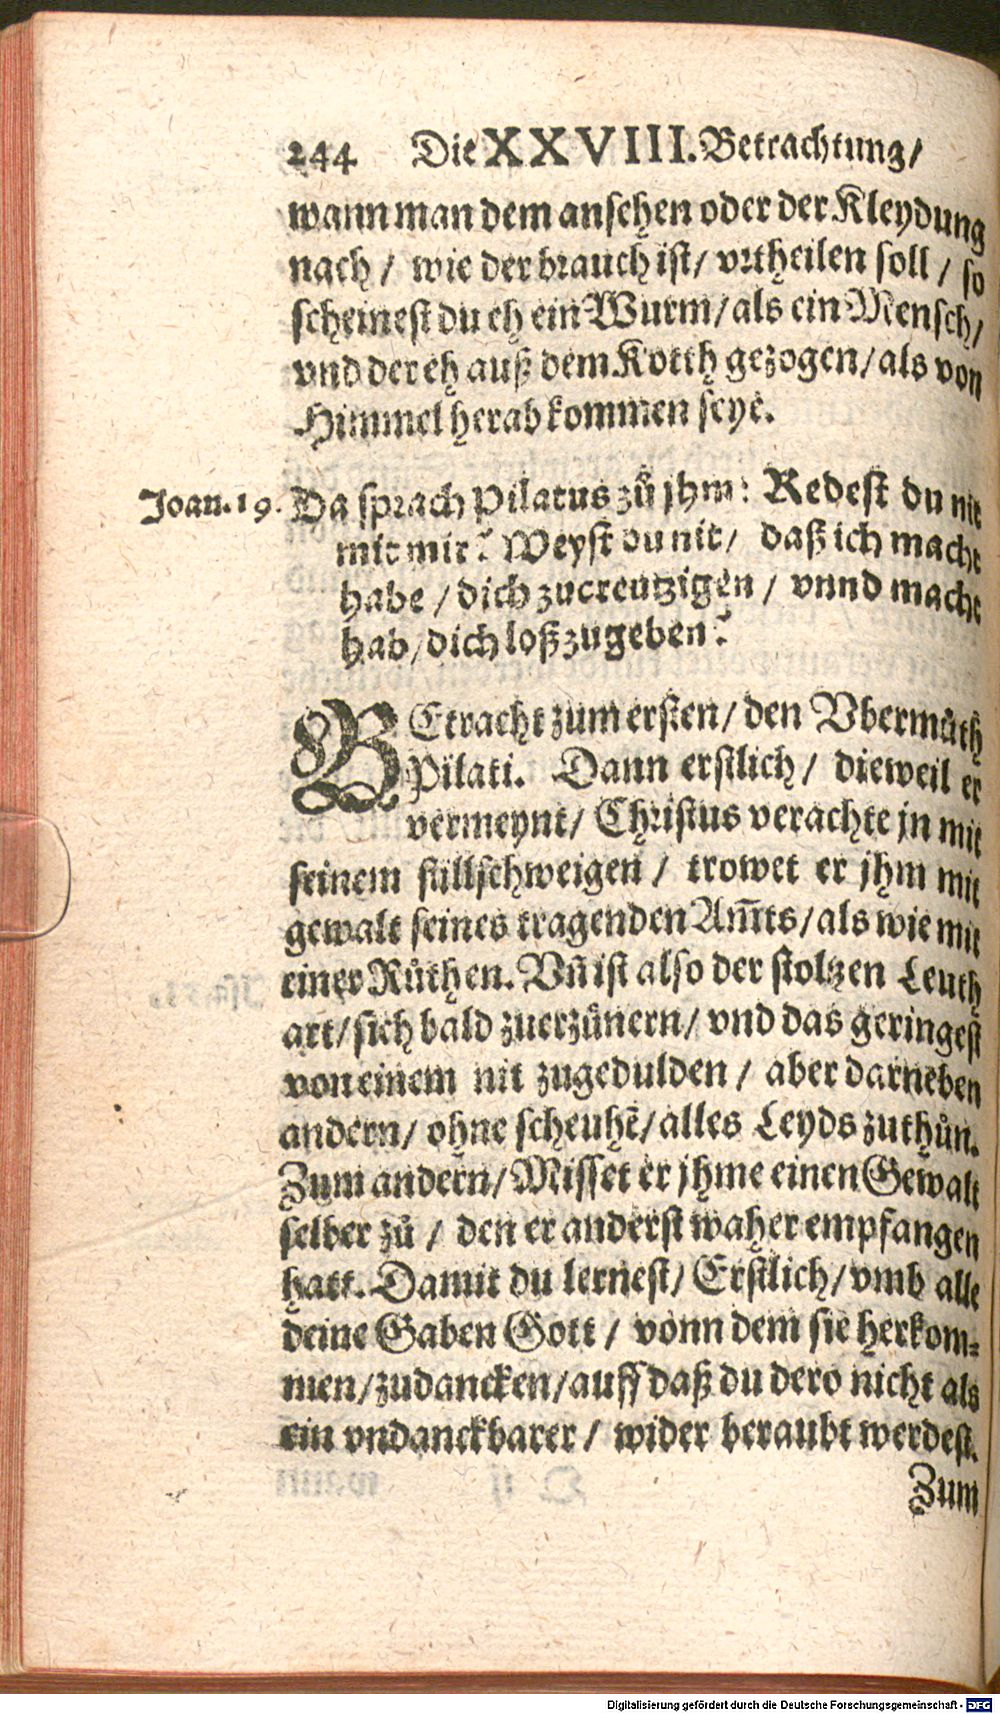 244 Die XXVIII. Betrachtung/
wann man dem ansehen oder der Kleydung
nach / wie der brauch ist/ vrtheilen soll / so
scheinest du eh ein Wurm/ als ein Mensch/
vnd der eh auß dem Kotth gezogen/ als von
Himmel herab kommen seye.
Joan. 19. Da sprach Pilatus zů jhm: Redest du nit
mit mir? Weyst du nit/ daß ich macht
habe / dich zucreutzigen / vnnd macht
hab/ dich loß zugeben?
BEtracht zum ersten/ den Vbermůth
Pilati. Dann erstlich/ dieweil er
vermeynt/ Christus verachte jn mit
seinem stillschweigen / trowet er jhm mit
gewalt seines tragenden Am̄ts/ als wie mit
einer Růthen. Vñ ist also der stoltzen Leuth
art/ sich bald zuerzůnern/ vnd das geringest
von einem nit zugedulden / aber darneben
andern/ ohne scheuhē/ alles Leyds zuthůn.
Zum andern/ Misset er jhme einen Gewalt
selber zů / den er anderst waher empfangen
hatt. Damit du lernest/ Erstlich/ vmb alle
deine Gaben Gott / vonn dem sie herkom=
men/ zudancken/ auff daß du dero nicht als
ein vndanckbarer / wider beraubt werdest.
Zum
Digitalisierung gefördert durch die Deutsche Forschungsgemeinschaft - DFG